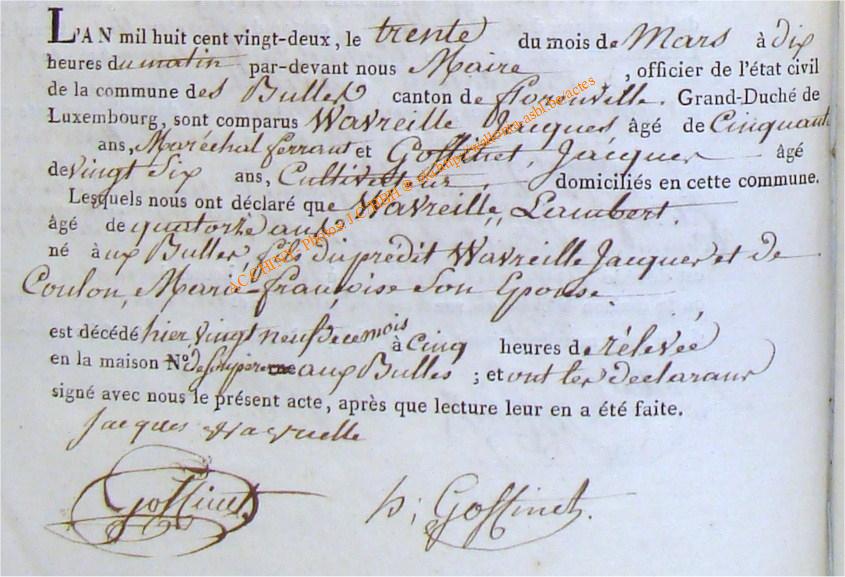 L'AN mil huit cent vingt-deux, le trente du mois de Mars à dix
heures du matin par-devant nous Maire , officier de l'état civil
de la commune des Bulles canton de florenville. Grand-Duché de
Luxembourg, sont comparus Wavreille Jacques, âgé de Cinquante
ans, Maréchal ferrant et Goffinet, Jacques âgé
de vingt Six ans, Cultivateur, domiciliés en cette commune.
Lesquels nous ont déclaré que Wavreille, Lambert.
âgé de quatorze ans
né à ux Bulles, fils du prédit Wavreille Jacques et de
Coulon, Marie-françoise Son Epouse.
est décédé hier vingt neuf de ce mois à Cinq heures de rélevée
en la maison No. de son père aux Bulles ; et ont les déclarans
signé avec nous le présent acte, après que lecture leur en a été faite.
jacques wavreille
Goffinet. h; Goffinet.